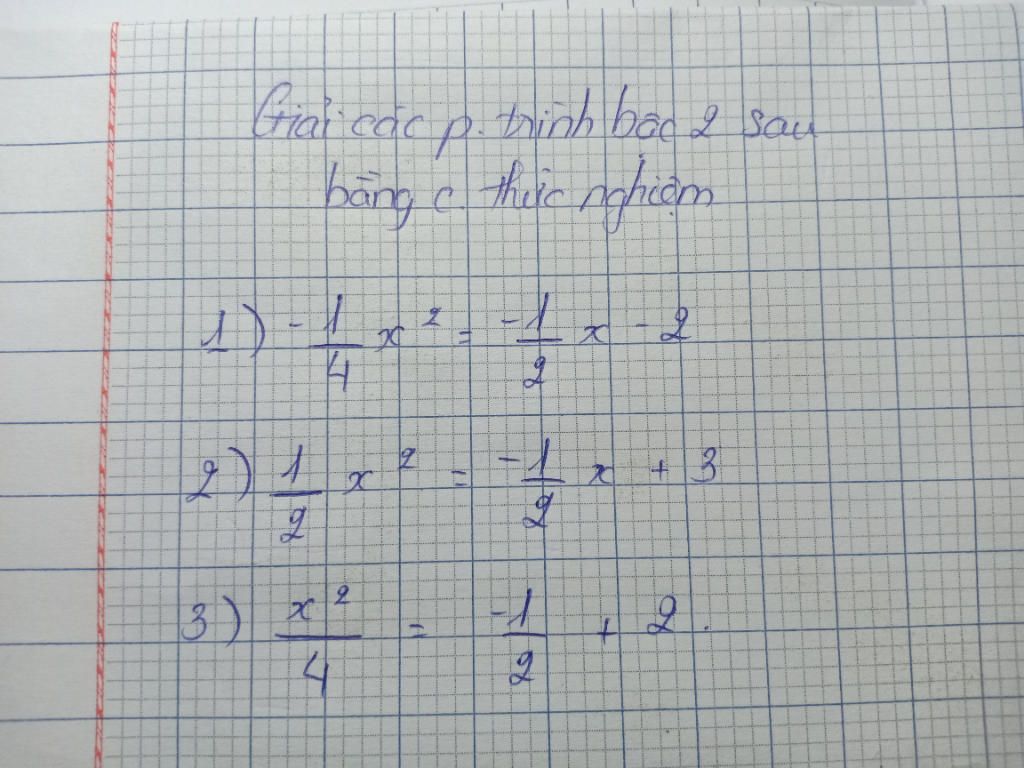 Giải các p. trình bậc 2 sau
bằng c. thức nghiệm
1) -1/4 x² = -1/2 x - 2
2) 1/2 x² = -1/2 x + 3
3) x²/4 = -1/2 + 2.